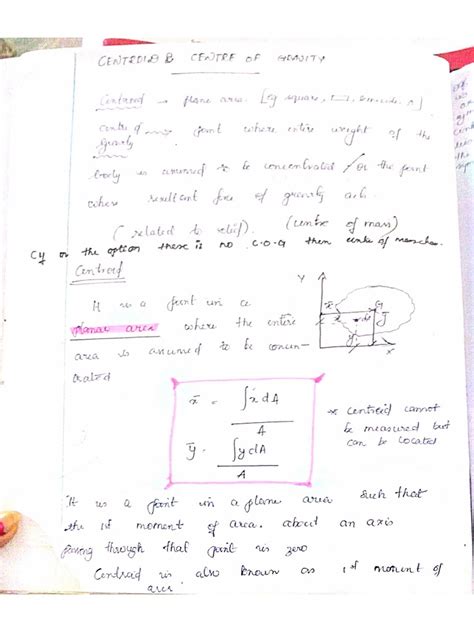 CENTROID & CENTRE OF GRAVITY
Centroid → plane area. [eg square, ▭, △]
centre of gravity → point where entire weight of the
body is assumed to be concentrated / or the point
where resultant force of gravity acts.
(related to relief). (centre of mass)
If on the option there is no C.O.G then centre of mass
Centroid
It is a point in a
planar area where the entire
area is assumed to be concen-
trated
Y
G
x̄ = ∫x dA / A
ȳ = ∫y dA / A
* centroid cannot
be measured but
can be located
It is a point in a plane area such that
the 1st moment of area. about an axis
passing through that point is zero
Centroid is also known as 1st moment of
area.